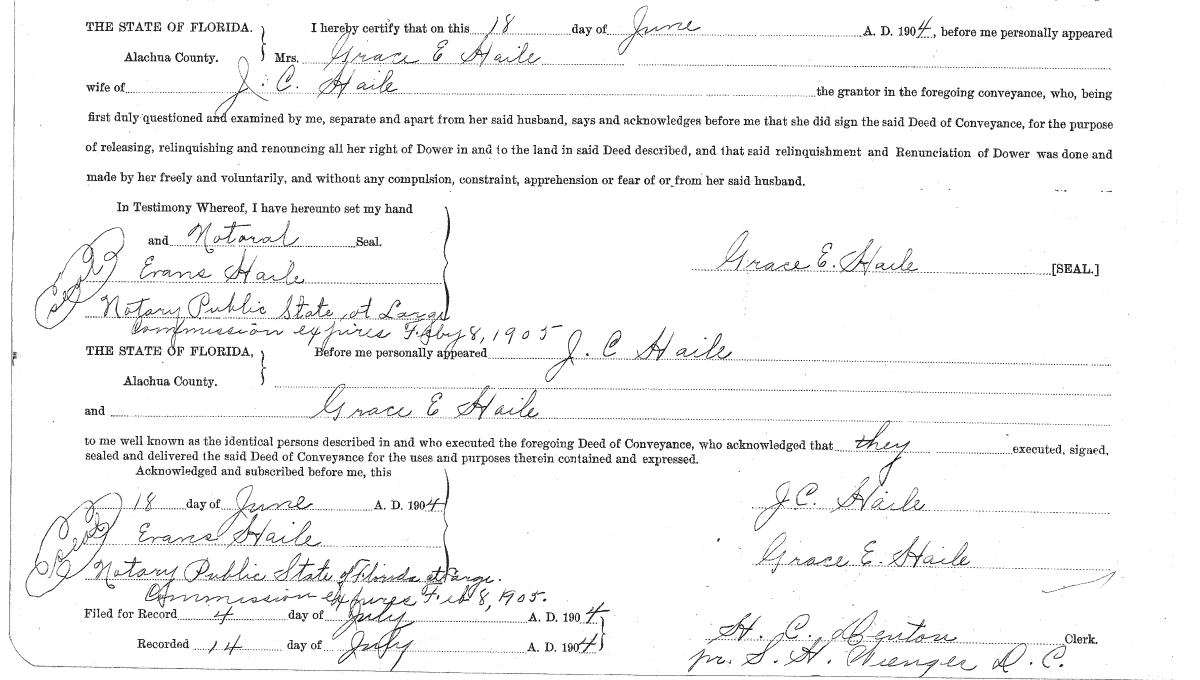 THE STATE OF FLORIDA. } I hereby certify that on this 18 day of June A. D. 1904, before me personally appeared
Alachua County. } Mrs. Grace E Haile
wife of J. C. Haile the grantor in the foregoing conveyance, who, being
first duly questioned and examined by me, separate and apart from her said husband, says and acknowledges before me that she did sign the said Deed of Conveyance, for the purpose
of releasing, relinquishing and renouncing all her right of Dower in and to the land in said Deed described, and that said relinquishment and Renunciation of Dower was done and
made by her freely and voluntarily, and without any compulsion, constraint, apprehension or fear of or from her said husband.
In Testimony Whereof, I have hereunto set my hand
and Notoral Seal.
Seal
Evans Haile
Grace E. Haile [SEAL.]
Notary Public State at Large
Commission expires Feby 8, 1905
THE STATE OF FLORIDA, } Before me personally appeared J. C Haile
Alachua County.
and Grace E Haile
to me well known as the identical persons described in and who executed the foregoing Deed of Conveyance, who acknowledged that they executed, signed,
sealed and delivered the said Deed of Conveyance for the uses and purposes therein contained and expressed.
Acknowledged and subscribed before me, this
18 day of June A. D. 1904
J C. Haile
Seal
Evans Haile
Grace E. Haile
Notary Public State of Florida at Large.
Commission expires Feb 8, 1905.
Filed for Record 4 day of July A. D. 1904
H. C. Denton Clerk.
Recorded 14 day of July A. D. 1904
pr. S. H. Wienger D. C.